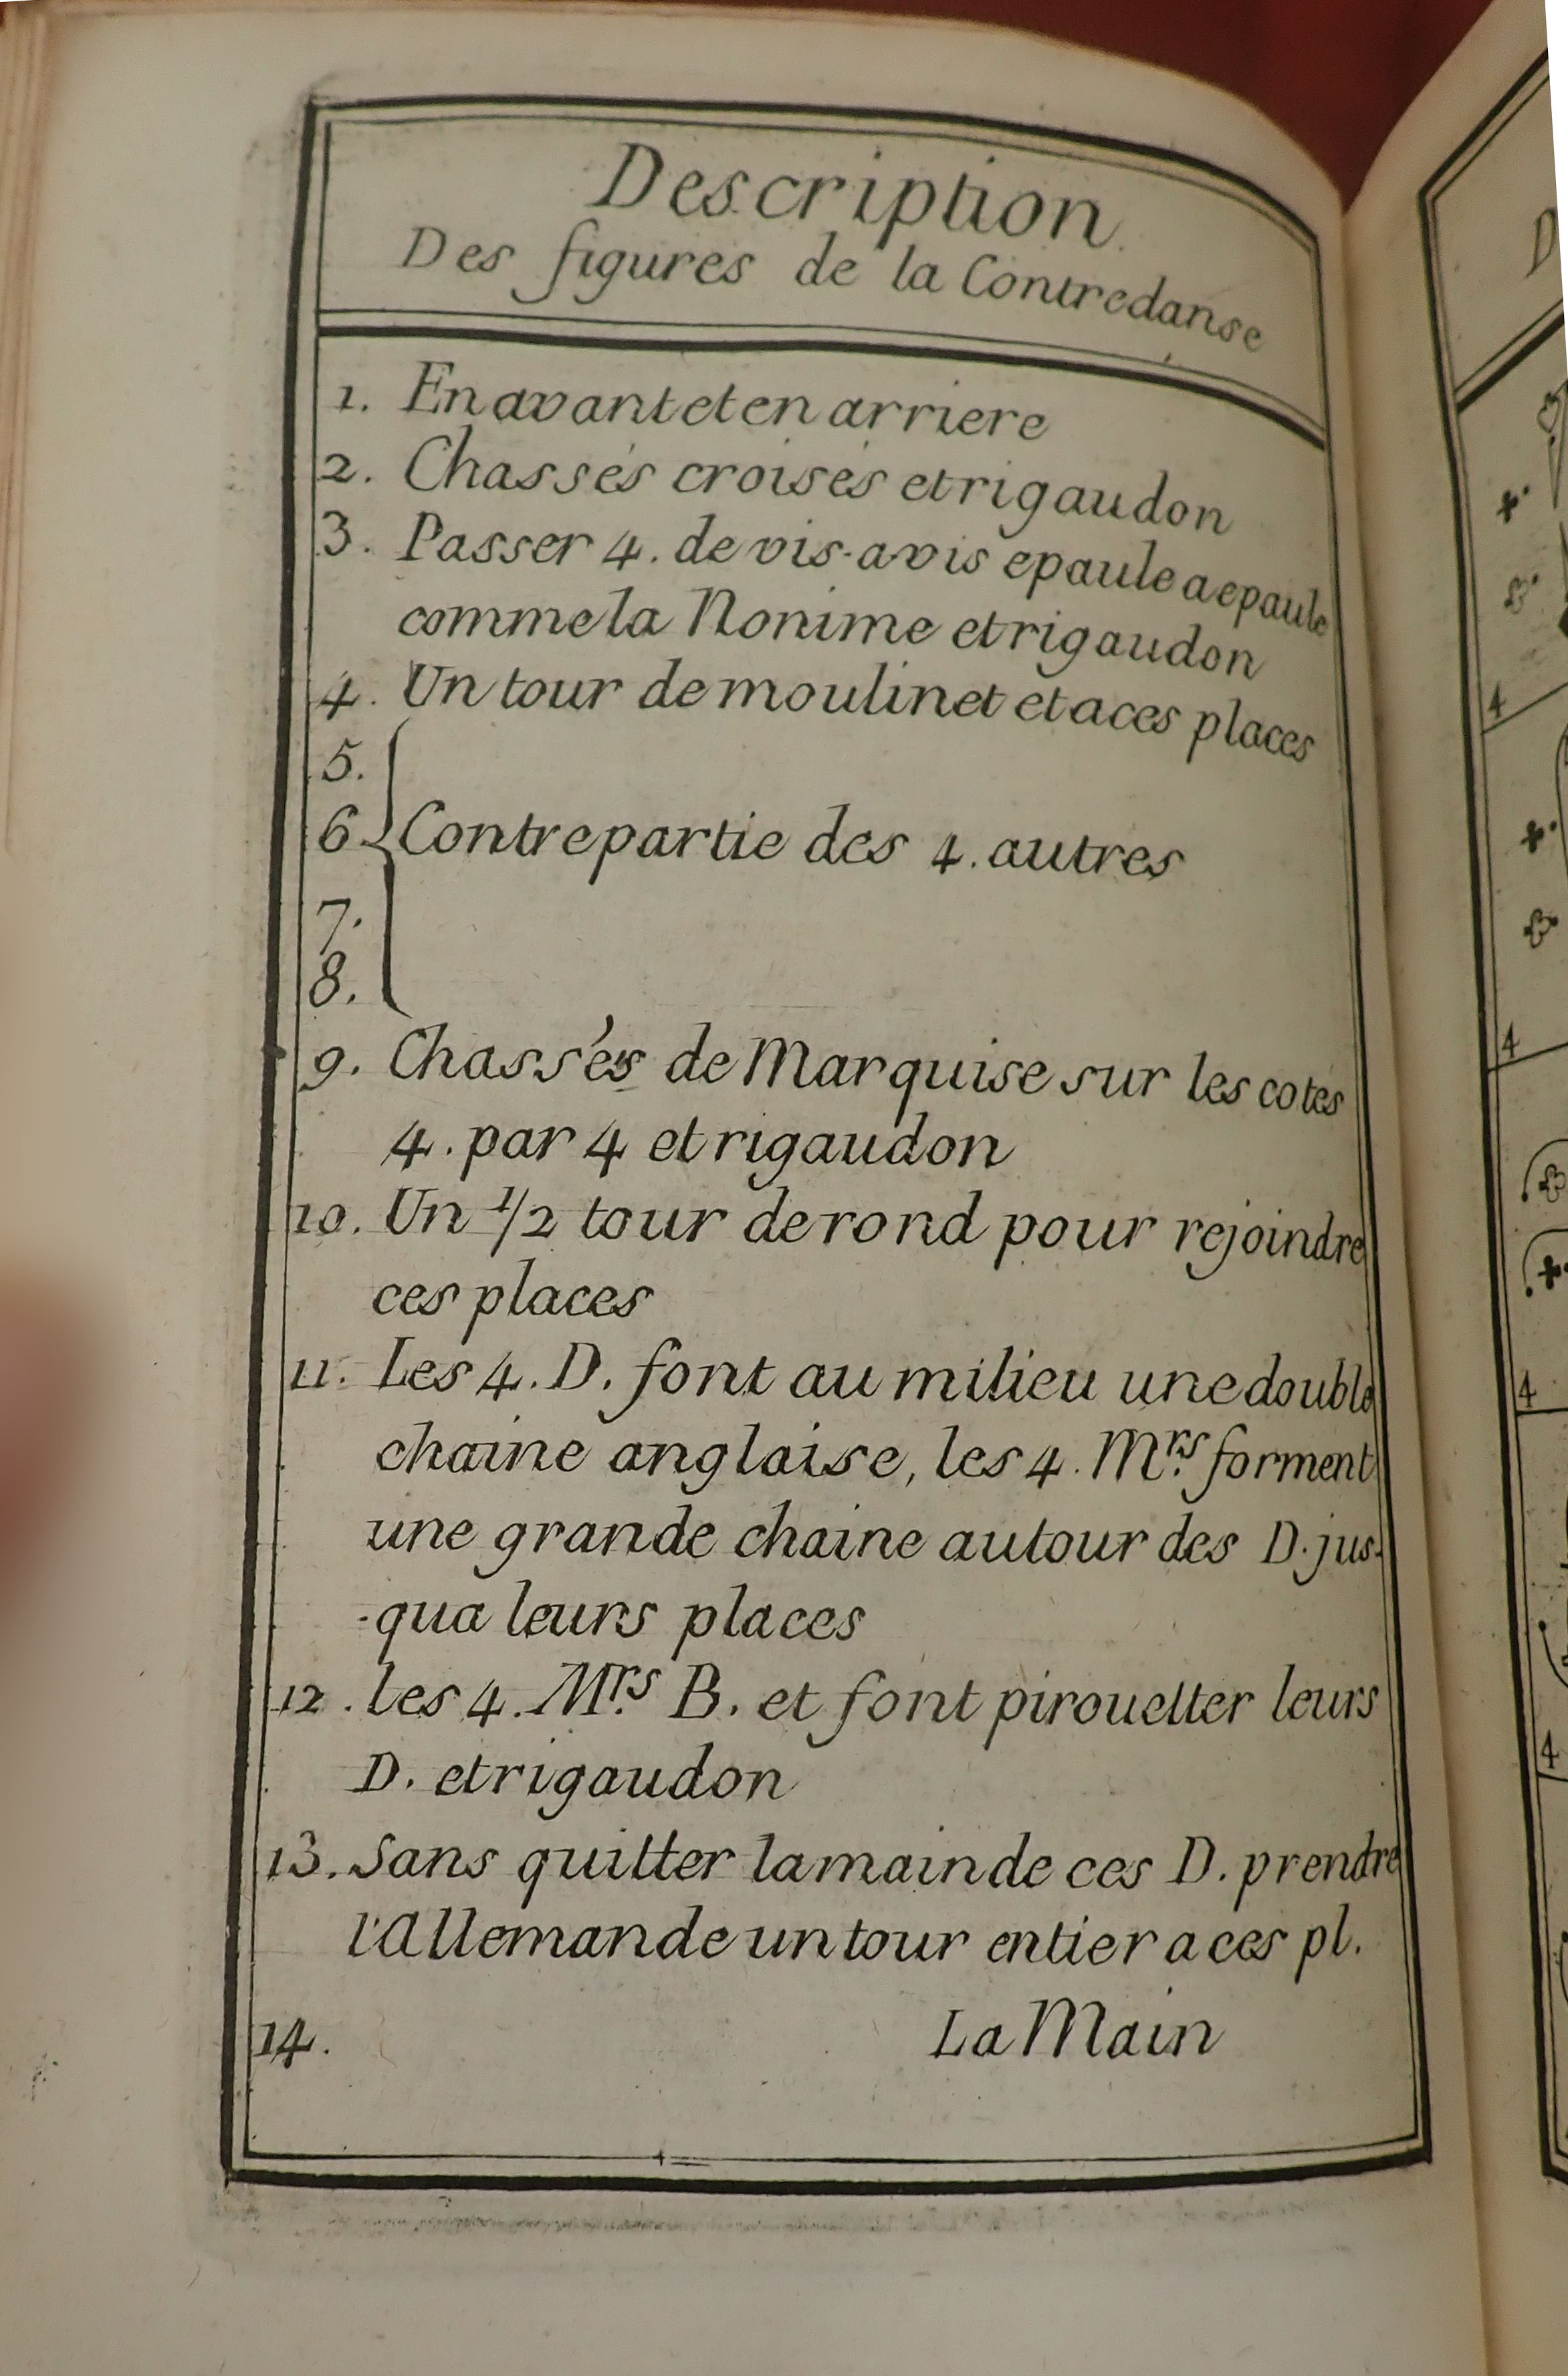 Description
Des figures de la Contredanse
1. En avant et en arriere
2. Chassés croisés et rigaudon
3. Passer 4. de vis-a-vis epaule a epaule
comme la Nonime et rigaudon
4. Un tour de moulinet et a ces places
5.
6 Contrepartie des 4. autres
7.
8.
9. Chassés de Marquise sur les cotés
4. par 4 et rigaudon
10. Un 1/2 tour de rond pour rejoindre
ces places
11. Les 4. D. font au milieu une double
chaine anglaise, les 4. Mrs. forment
une grande chaine autour des D. jus-
-qua leurs places
12. les 4. Mrs. B. et font pirouetter leurs
D. et rigaudon
13. Sans quitter la main de ces D. prendre
l'Allemande un tour entier a ces pl.
14. La Main
D
4
4
4
4